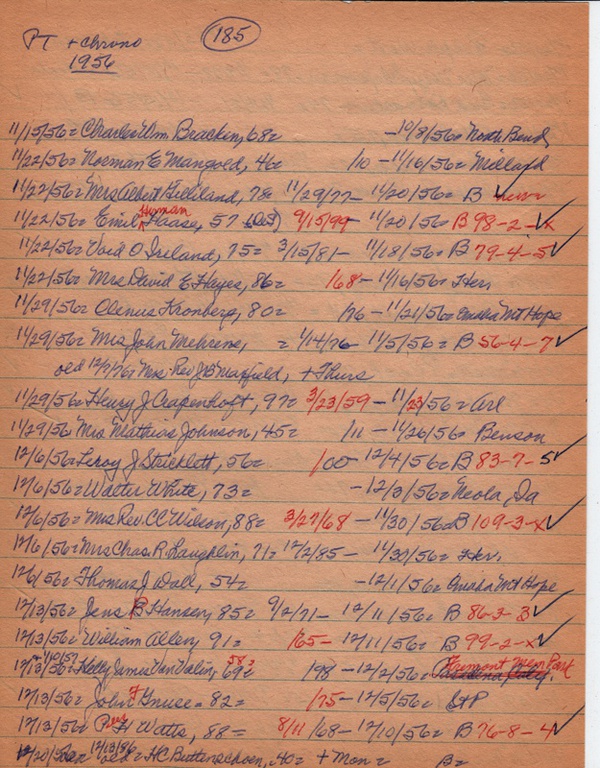 PT + Chrono 185
1956
11/15/56= Charles Wm. Bracken, 68= -10/8/56= North Bend
11/22/56= Norman E Mangold, 46= /10 - 11/16/56= Millard
11/22/56= Mrs Albert Gilliland, 78= 11/29/77- 11/20/56= B ✓
11/22/56= Emil Herman Haase, 57 9/15/99- 11/20/56= B 98-2-x ✓
11/22/56= Void O Ireland, 75= 3/15/81- 11/18/56= B 79-4-5 ✓
11/22/56= Mrs David E Hayes, 86= /68- 11/16/56= Her.
11/29/56= Olenus Kronberg, 80= /76 - 11/21/56= Omaha Mt Hope
11/29/56= Mrs John Mehrens, = 1/14/76- 11/5/56= B 56-4-7 ✓
old 12/7/76= Mrs. Rev J B Maxfield, + Thurs
11/29/56= Henry J Crapenhoft, 97= 3/23/59 - 11/23/56= Arl
11/29/56= Mrs Mathias Johnson, 45= /11 - 11/26/56= Benson
12/6/56= Leroy J Stricklett, 56= /00- 12/4/56= B 83-7-5 ✓
12/6/56= Walter White, 73= -12/3/56= Neola, Ia
12/6/56= Mrs Rev. CC Wilson, 88= 3/27/68 - 11/30/56= B 109-3-x ✓
12/6/56= Mrs Chas. R. Laughlin, 71= 12/2/85- 11/30/56= Her.
12/6/56= Thomas J Wall, 54= -12/1/56= Omaha Mt Hope
12/13/56= Jens B Hansen, 85= 9/2/71- 12/11/56= B 86-3-3 ✓
12/13/56= William Allen, 91= /65- 12/11/56= B 99-2-x ✓
12/13/56= Kelly James Van Valin, 58= 69= /98 - 12/2/56= Fremont Mem Park
12/13/56= John F Gnuse= 82= /75- 12/5/56= St P
12/13/56= H Watts, 88= 8/11/68- 12/10/56= B 76-8-4 ✓
12/20/56= old= 12/13/86= HC Buttenschoen, 40= + Mon= B=